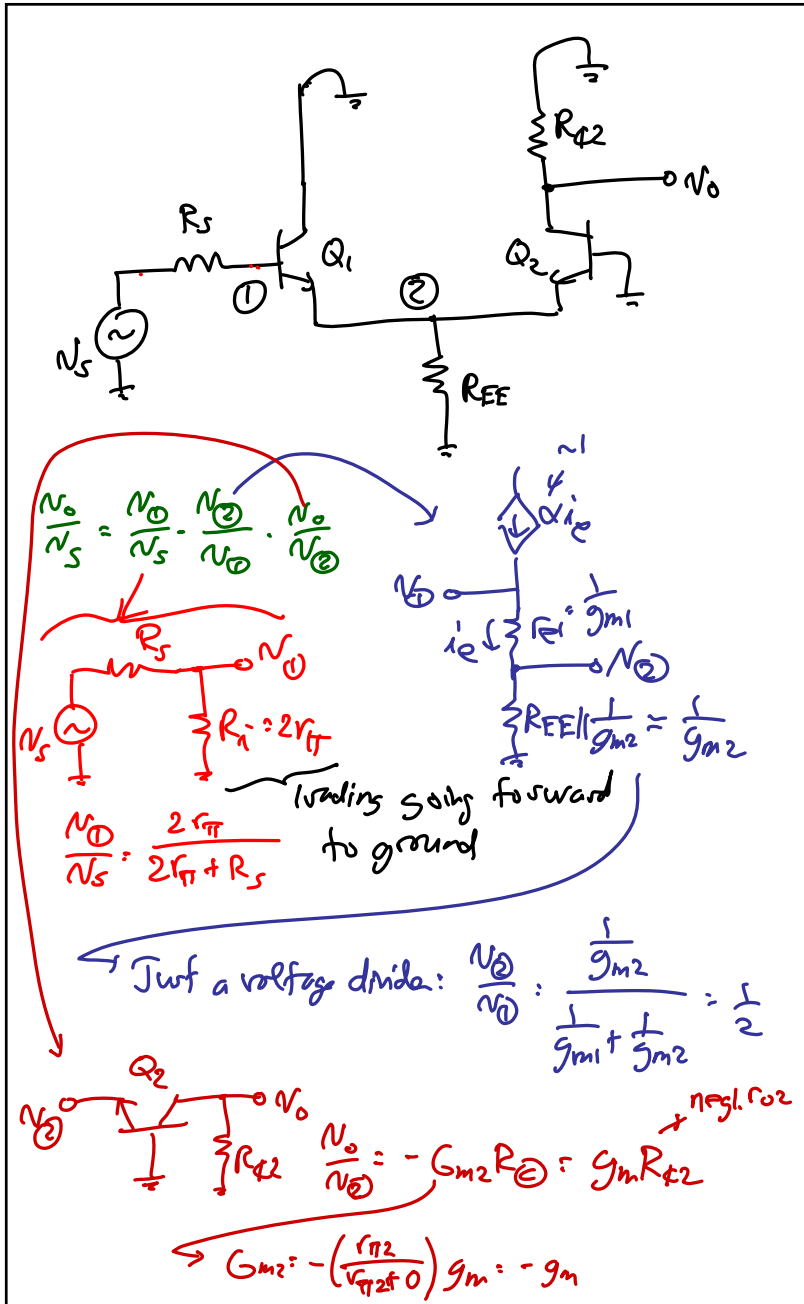 R₵2
vo
Rs
Q1
Q2
①
②
vs
REE
vo/vs = v①/vs · v②/v① · vo/v②
~1
αie
v①
ie ↓ re1 = 1/gm1
v②
REE||1/gm2 ≈ 1/gm2
Rs
v①
vs
Ri = 2rπ
loading going forward
to ground
v①/vs = 2rπ/(2rπ + Rs)
Just a voltage divider: v②/v① = (1/gm2)/(1/gm1 + 1/gm2) = 1/2
Q2
v②
vo
R₵2
negl. ro2
vo/v② = -Gm2 R© = gm R₵2
Gm2 = -(rπ2/(rπ2+0)) gm = -gm